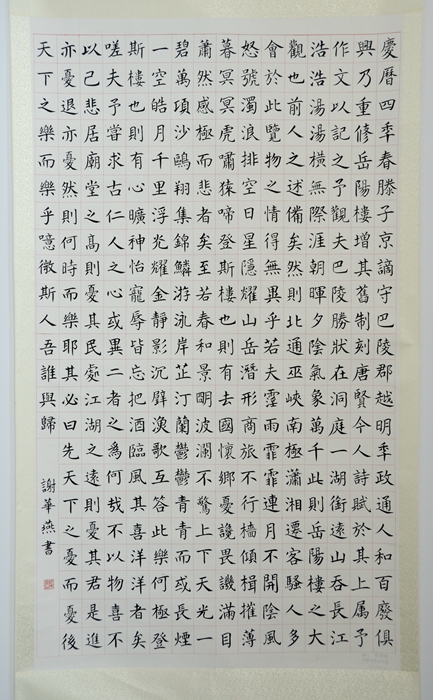 慶曆四秊春滕子京謫守巴陵郡越明秊政通人和百廢俱
興乃重修岳陽樓增其舊制刻唐賢今人詩賦於其上屬予
作文以記之予觀夫巴陵勝狀在洞庭一湖銜遠山吞長江
浩浩湯湯橫無際涯朝暉夕陰氣象萬千此則岳陽樓之大
觀也前人之述備矣然則北通巫峽南極瀟湘遷客騷人多
會於此覽物之情得無異乎若夫霪雨霏霏連月不開陰風
怒號濁浪排空日星隱耀山岳潛形商旅不行檣傾楫摧薄
暮冥冥虎嘯猿啼登斯樓也則有去國懷鄉憂讒畏譏滿目
蕭然感極而悲者矣至若春和景明波瀾不驚上下天光一
碧萬頃沙鷗翔集錦鱗游泳岸芷汀蘭鬱鬱青青而或長煙
一空皓月千里浮光耀金靜影沉璧漁歌互答此樂何極登
斯樓也則有心曠神怡寵辱皆忘把酒臨風其喜洋洋者矣
嗟夫予嘗求古仁人之心或異二者之為何哉不以物喜不
以己悲居廟堂之高則憂其民處江湖之遠則憂其君是進
亦憂退亦憂然則何時而樂耶其必曰先天下之憂而憂後
天下之樂而樂乎噫微斯人吾誰與歸
謝華燕書